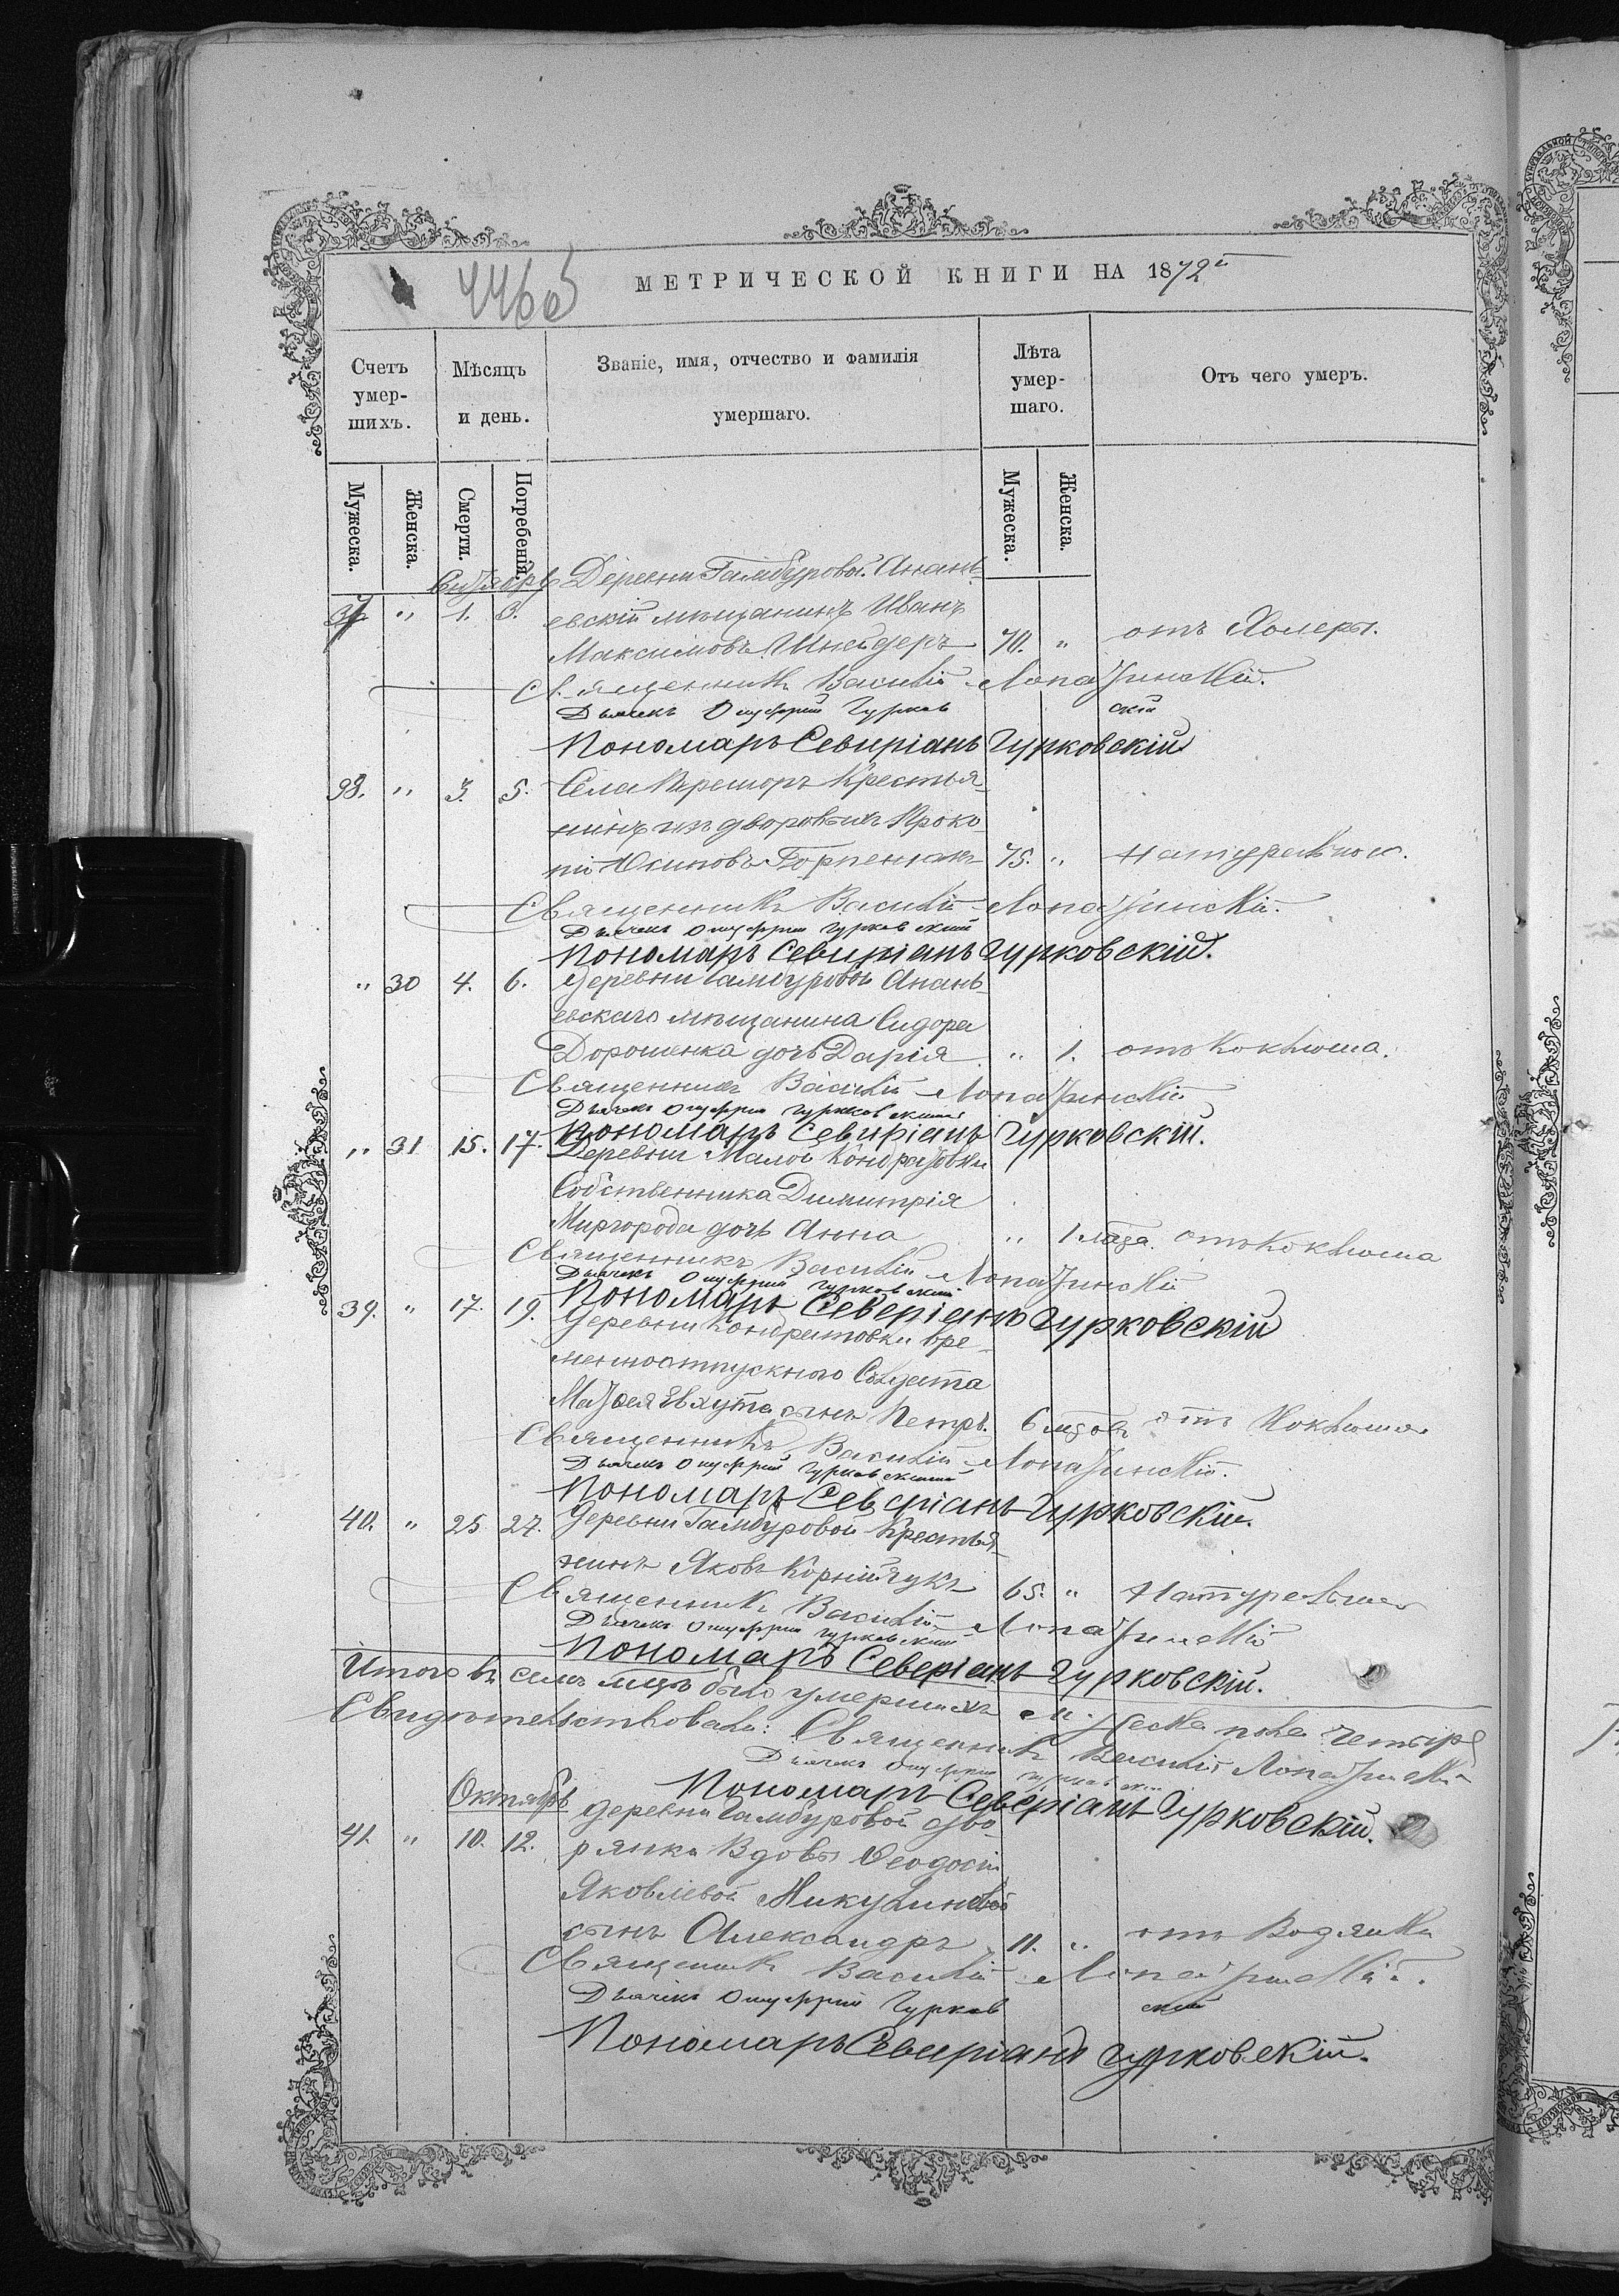 МЕТРИЧЕСКОЙ КНИГИ НА 1872й
446об
Счетъ умершихъ.
Мѣсяцъ и день.
Званіе, имя, отчество и фамилія умершаго.
Лѣта умершаго.
Отъ чего умеръ.
Мужеска.
Женска.
Смерти.
Погребенія.
Мужеска.
Женска.
Деревни Гамбуровой Анань-
37 " 1. 3. евскій мѣщанинъ Иванъ
Максимовъ Шнейдеръ 70. " отъ Холеры.
Священникъ Василій Лопатинскій.
Дьячекъ Онуфрій Гурковскій
Пономарь Севиріанъ Гурковскій
38. " 3. 5. Села Перешоръ Крестья-
нинъ изъ дворовыхъ Проко-
пій Осиповъ 75. " натурально.
Священникъ Василій Лопатинскій.
Дьячекъ Онуфрій Гурковскій
Пономарь Севиріанъ Гурковскій.
" 30 4. 6. Деревни Гамбуровой Анань-
евскаго мѣщанина Сидора
Дорошенка дочь Дарія " 1. отъ Коклюша.
Священникъ Василій Лопатинскій
Дьячекъ Онуфрій Гурковскій
Пономарь Севиріанъ Гурковскій.
" 31 15. 17. Деревни Малой Кондратовки
Собственника Димитрія
Миргорода дочь Анна " 1 года. отъ Коклюша
Священникъ Василій Лопатинскій
Дьячекъ Онуфрій Гурковскій
Пономарь Северіанъ Гурковскій
39. " 17. 19. Деревни Кондратовки вре-
менноотпускного Солдата
Матѳея сынъ Петръ. 6 отъ Коклюша
Священникъ Василій Лопатинскій.
Дьячекъ Онуфрій Гурковскій
Пономарь Северіанъ Гурковскій.
40. " 25 27. Деревни Гамбуровой Крестья-
нинъ Яковъ Корнійчукъ 65. " Натурально
Священникъ Василій Лопатинскій
Дьячекъ Онуфрій Гурковскій
Пономарь Северіанъ Гурковскій.
Итого въ семъ мцѣ было умершихъ мужеска пола четыре
Свидѣтельствовали: Священникъ Василій Лопатинскій
Дьячекъ Онуфрій Гурковскій
Пономарь Северіанъ Гурковскій.
Октябрь
Деревни Гамбуровой дво-
41. " 10. 12. рянки Вдовы Ѳеодосіи
Яковлевой Микулиновой
сынъ Александръ 11. " отъ Водянки
Священникъ Василій Лопатинскій.
Дьячекъ Онуфрій Гурковскій
Пономарь Севиріанъ Гурковскій.